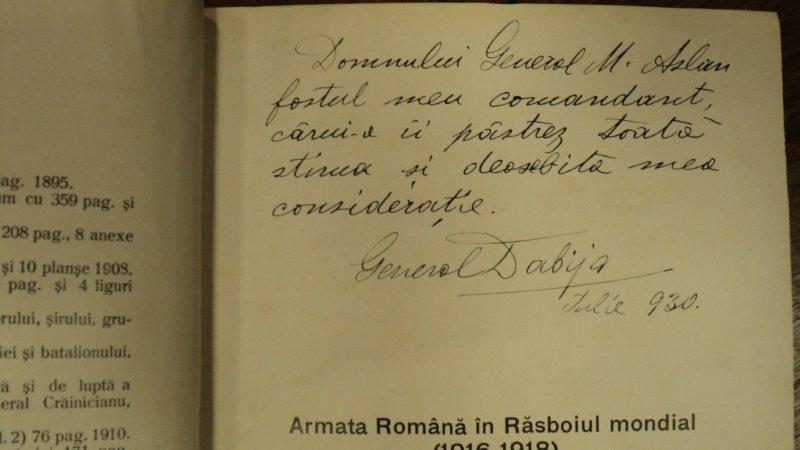 ag. 1895.
m cu 359 pag. și
208 pag., 8 anexe
și 10 planșe 1908.
pag. și 4 figuri
rului, șirului, gru-
iei și batalionului,
ă și de luptă a
eral Crăinicianu,
l. 2) 76 pag. 1910.
Domnului General M. Aslan
fostul meu comandant,
cărui-a îi păstrez toată
stima și deosebita mea
considerație.
General Dabija
Iulie 930.
Armata Română în Răsboiul mondial
(1916-1918)